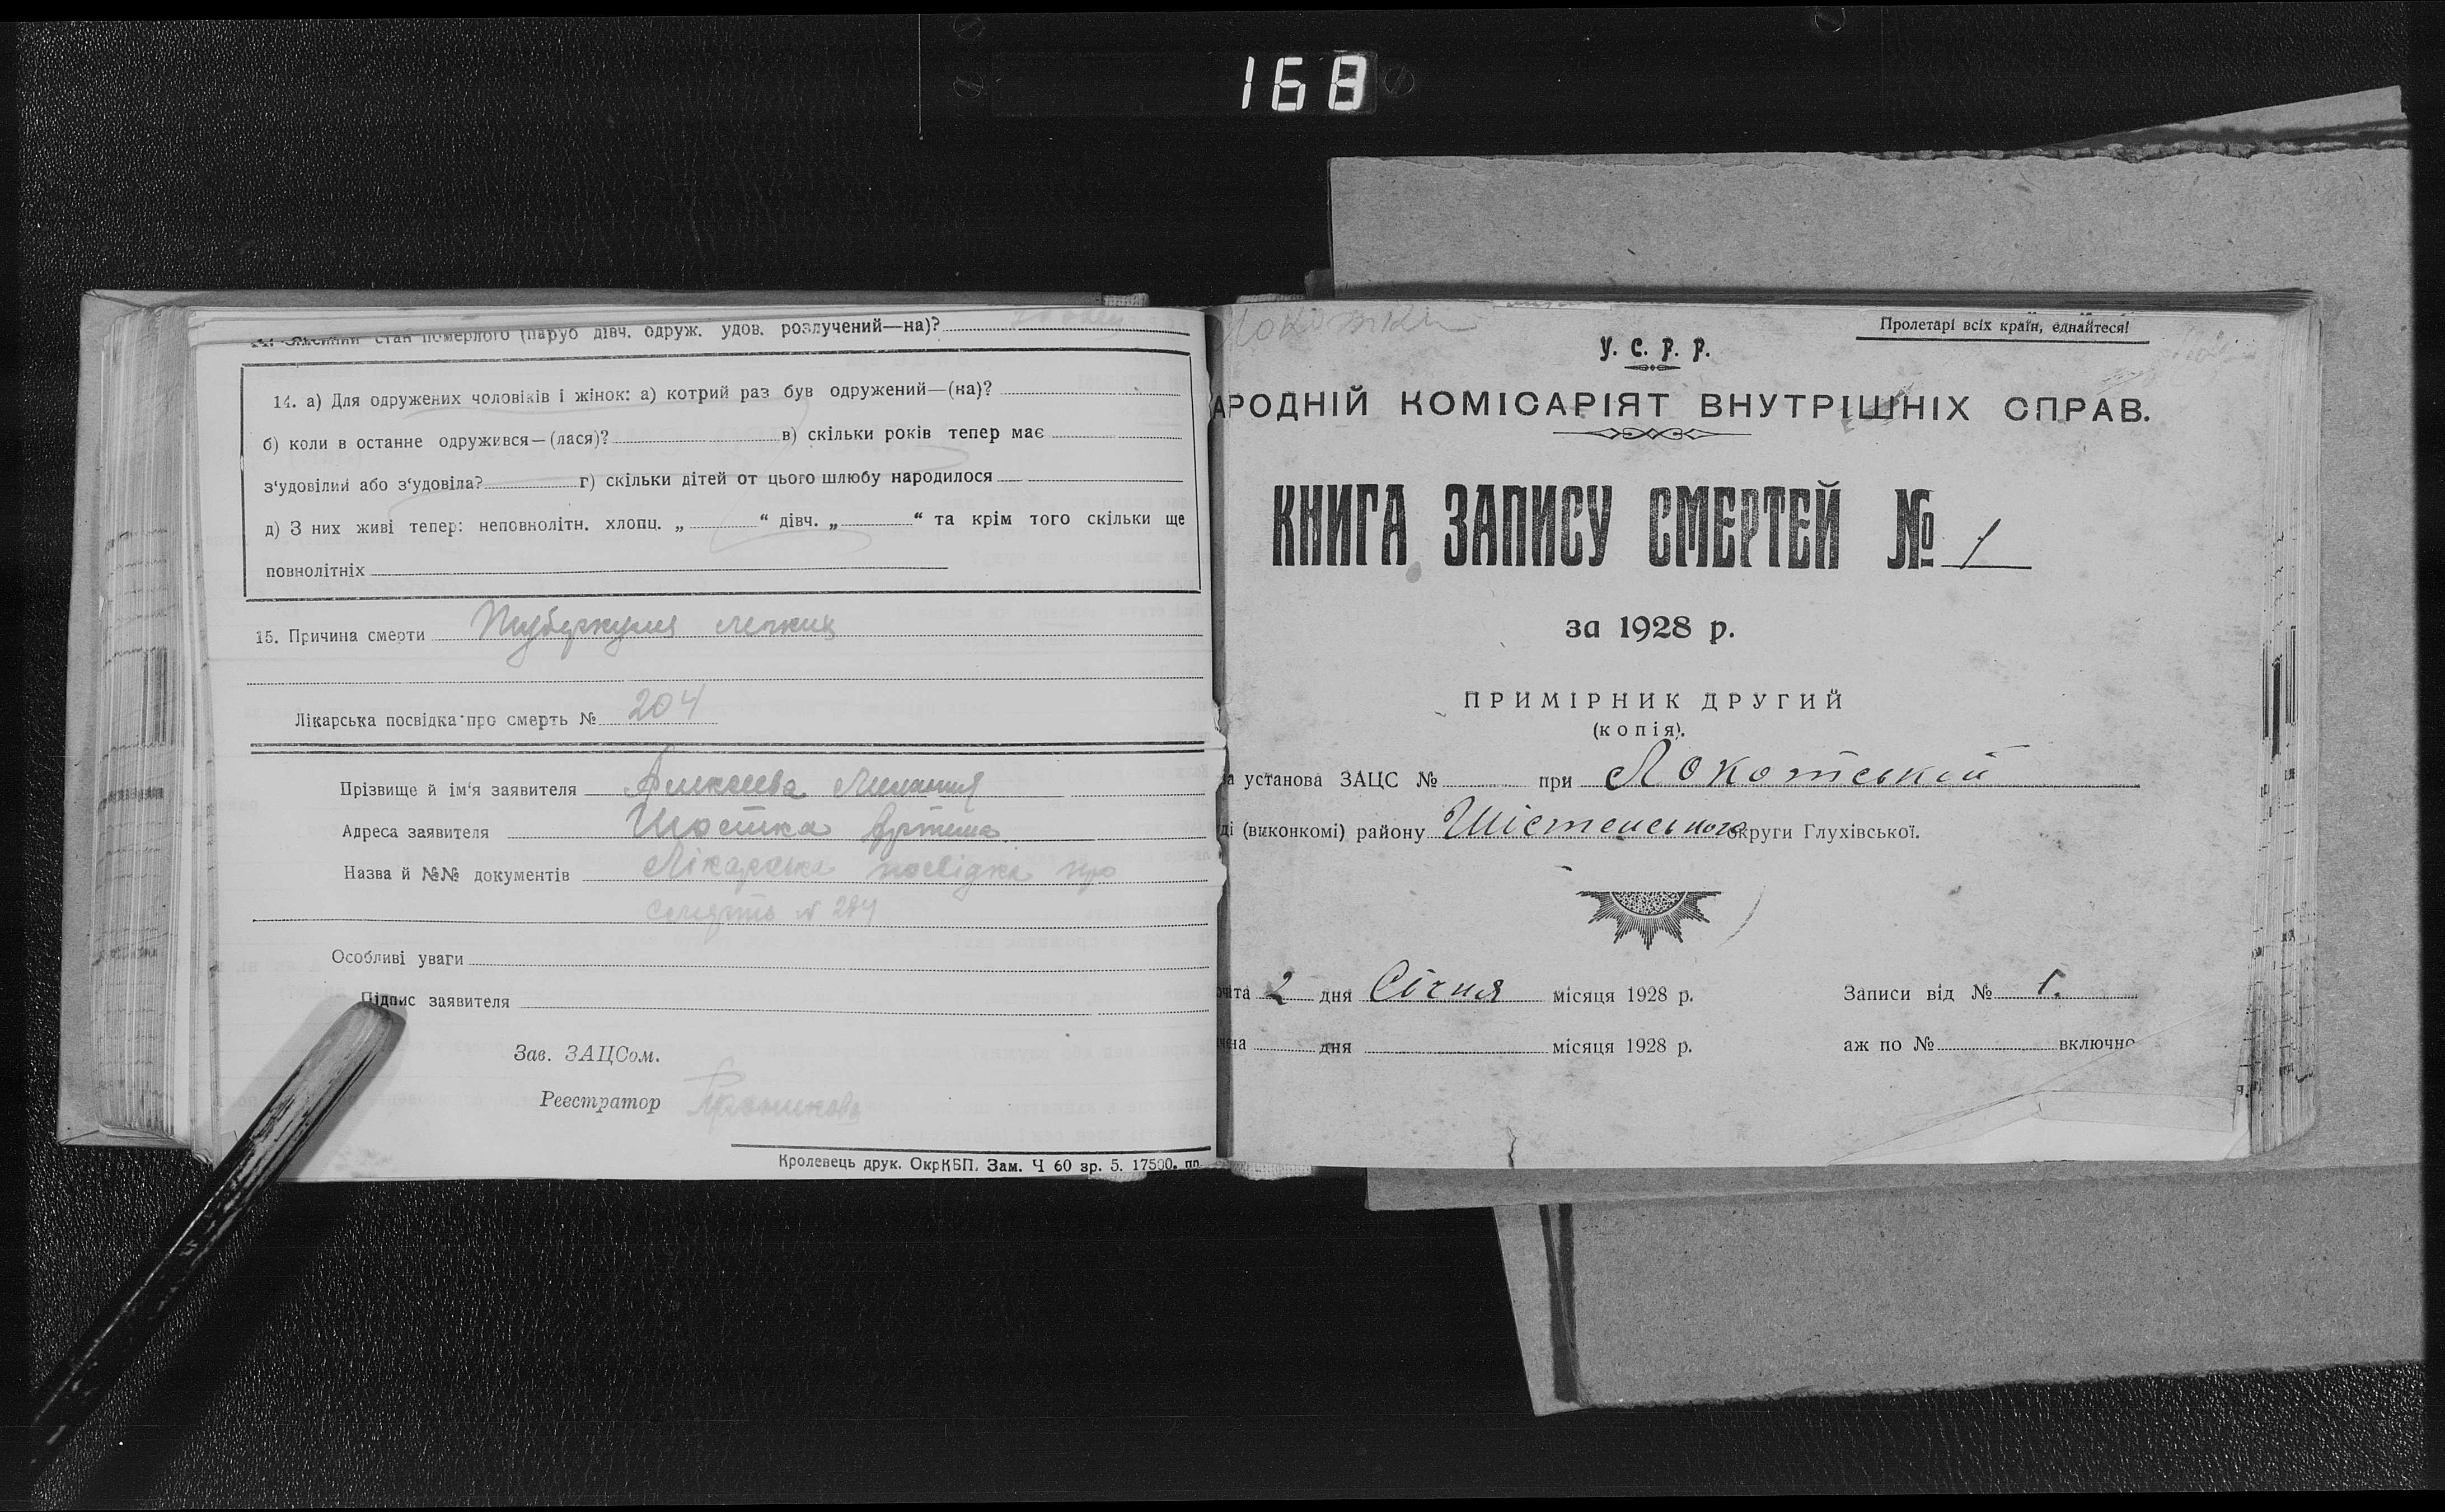 168
стан померлого (паруб дівч. одруж. удов. розлучений—на)?
14. а) Для одружених чоловіків і жінок: а) котрий раз був одружений—(на)?
б) коли в останне одружився—(лася)? в) скільки років тепер має
з‘удовілий або з‘удовіла? г) скільки дітей от цього шлюбу народилося
д) З них живі тепер: неповнолітн. хлопц. „ “ дівч. „ “ та крім того скільки ще
повнолітніх
15. Причина смерти
Лікарська посвідка про смерть № 204
Прізвище й ім‘я заявителя Алексеева
Адреса заявителя Шостка Артема
Назва й №№ документів Лікарська посвідка про
смерть № 204
Особливі уваги
Підпис заявителя
Зав. ЗАЦСом.
Реєстратор
Кролевець друк. ОкрКБП. Зам. Ч 60 зр. 5. 17500. пр.
Локотки
Пролетарі всіх країн, єднайтеся!
У. С. Р. Р.
АРОДНІЙ КОМІСАРІЯТ ВНУТРІШНІХ СПРАВ.
КНИГА ЗАПИСУ СМЕРТЕЙ № 1
за 1928 р.
ПРИМІРНИК ДРУГИЙ
(копія).
а установа ЗАЦС № при Локотській
ді (виконкомі) району Шістенського округи Глухівської.
очата 2 дня Січня місяця 1928 р. Записи від № 1.
чена дня місяця 1928 р. аж по № включно